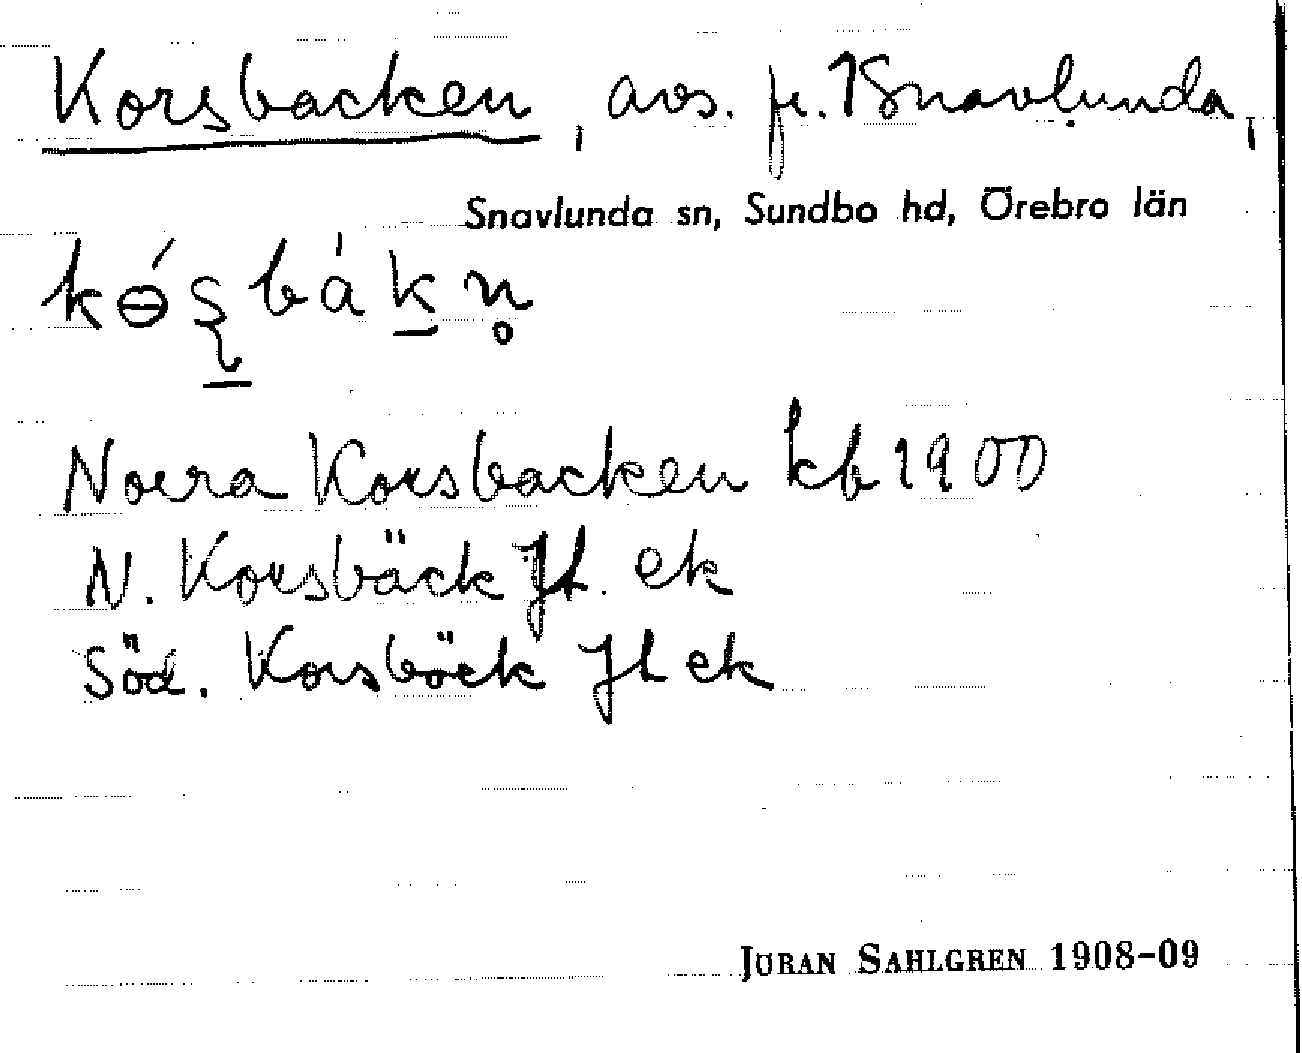 Korsbacken, avs. fr. 1 Snavlunda,
Snavlunda sn, Sundbo hd, Örebro län
kɵ́ʂbákn̥
Norra Korsbacken kb 1900
N. Korsbäck Jl. ek
Söd. Korsbäck Jl ek
JÖRAN SAHLGREN 1908-09